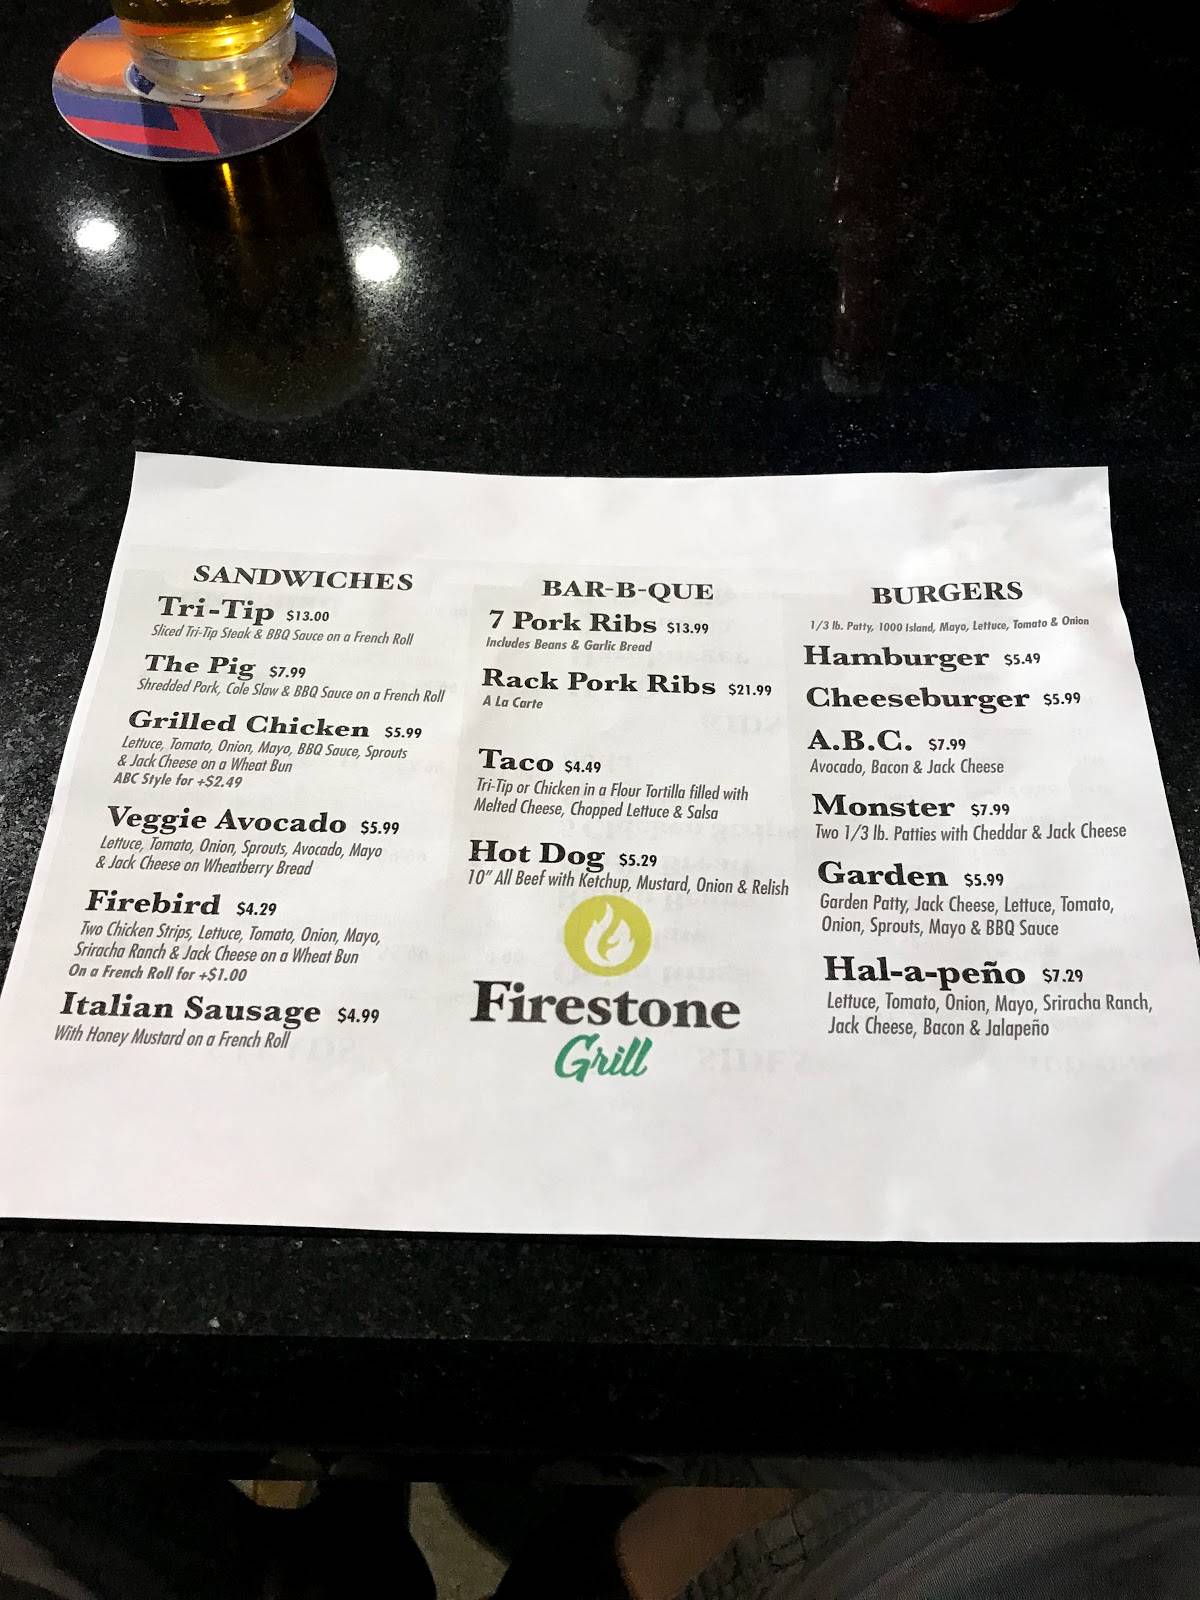 SANDWICHES
Tri-Tip $13.00
Sliced Tri-Tip Steak & BBQ Sauce on a French Roll
The Pig $7.99
Shredded Pork, Cole Slaw & BBQ Sauce on a French Roll
Grilled Chicken $5.99
Lettuce, Tomato, Onion, Mayo, BBQ Sauce, Sprouts
& Jack Cheese on a Wheat Bun
ABC Style for +$2.49
Veggie Avocado $5.99
Lettuce, Tomato, Onion, Sprouts, Avocado, Mayo
& Jack Cheese on Wheatberry Bread
Firebird $4.29
Two Chicken Strips, Lettuce, Tomato, Onion, Mayo,
Sriracha Ranch & Jack Cheese on a Wheat Bun
On a French Roll for +$1.00
Italian Sausage $4.99
With Honey Mustard on a French Roll
BAR-B-QUE
7 Pork Ribs $13.99
Includes Beans & Garlic Bread
Rack Pork Ribs $21.99
A La Carte
Taco $4.49
Tri-Tip or Chicken in a Flour Tortilla filled with
Melted Cheese, Chopped Lettuce & Salsa
Hot Dog $5.29
10" All Beef with Ketchup, Mustard, Onion & Relish
Firestone
Grill
BURGERS
1/3 lb. Patty, 1000 Island, Mayo, Lettuce, Tomato & Onion
Hamburger $5.49
Cheeseburger $5.99
A.B.C. $7.99
Avocado, Bacon & Jack Cheese
Monster $7.99
Two 1/3 lb. Patties with Cheddar & Jack Cheese
Garden $5.99
Garden Patty, Jack Cheese, Lettuce, Tomato,
Onion, Sprouts, Mayo & BBQ Sauce
Hal-a-peño $7.29
Lettuce, Tomato, Onion, Mayo, Sriracha Ranch,
Jack Cheese, Bacon & Jalapeño